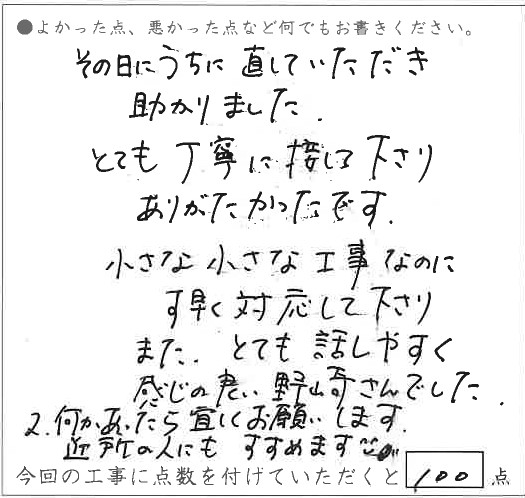 ●よかった点、悪かった点など何でもお書きください。
その日にうちに直していただき
助かりました.
とても丁寧に接して下さり
ありがたかったです.
小さな小さな工事なのに
す早く対応して下さり
また. とても話しやすく
感じの良い野崎さんでした.
2. 何かあったら宜しくお願いします.
近所の人にもすすめます
今回の工事に点数を付けていただくと 100 点